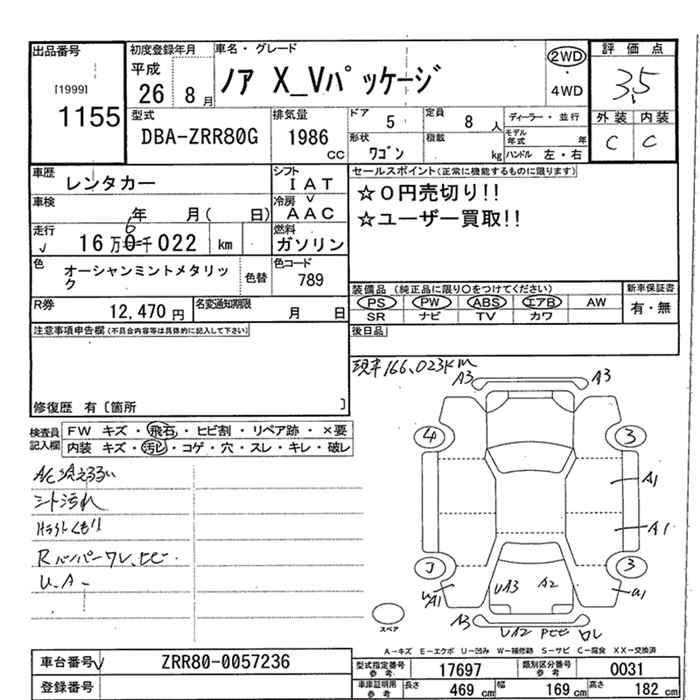 出品番号
[1999]
1155
初度登録年月
平成
26 8月
車名・グレード
ノア X_Vパッケージ
2WD
4WD
評価点
3.5
外装 内装
C C
型式
DBA-ZRR80G
排気量
1986
CC
ドア 5
定員 8 人
形状 ワゴン
積載 kg
ディーラー・並行
モデル年式 年
ハンドル 左・右
車歴 レンタカー
シフト
IAT
車検 年 月( 日)
冷房
AAC
走行 16万6千022 km
燃料
ガソリン
色 オーシャンミントメタリック
色替
色コード
789
R券 12,470 円
名変通知期限 月 日
セールスポイント(正常に機能するものに限ります)
☆0円売切り!!
☆ユーザー買取!!
装備品 (純正品に限り○をつけてください)
PS PW ABS エアB AW
SR ナビ TV カワ
新車保証書
有・無
後日品
注意事項申告欄(不具合内容等は具体的に記入して下さい)
修復歴 有〔箇所 〕
現車166,023km
検査員記入欄
FW キズ・飛石・ヒビ割・リペア跡・×要
内装 キズ・汚レ・コゲ・穴・スレ・キレ・破レ
シート汚れ
Rバンパーワレ、ヒビ
U.A
A3 A3
4 3
A1
A1
3
UA3 A2
UA1
A3 UA2
スペア
A−キズ E−エクボ U−凹み W−補修跡 S−サビ C−腐食 XX−交換済
車台番号 ZRR80-0057236
登録番号
型式指定番号 参考 17697
類別区分番号 参考 0031
車庫証明用 参考 長さ 469 cm 幅 169 cm 高さ 182 cm